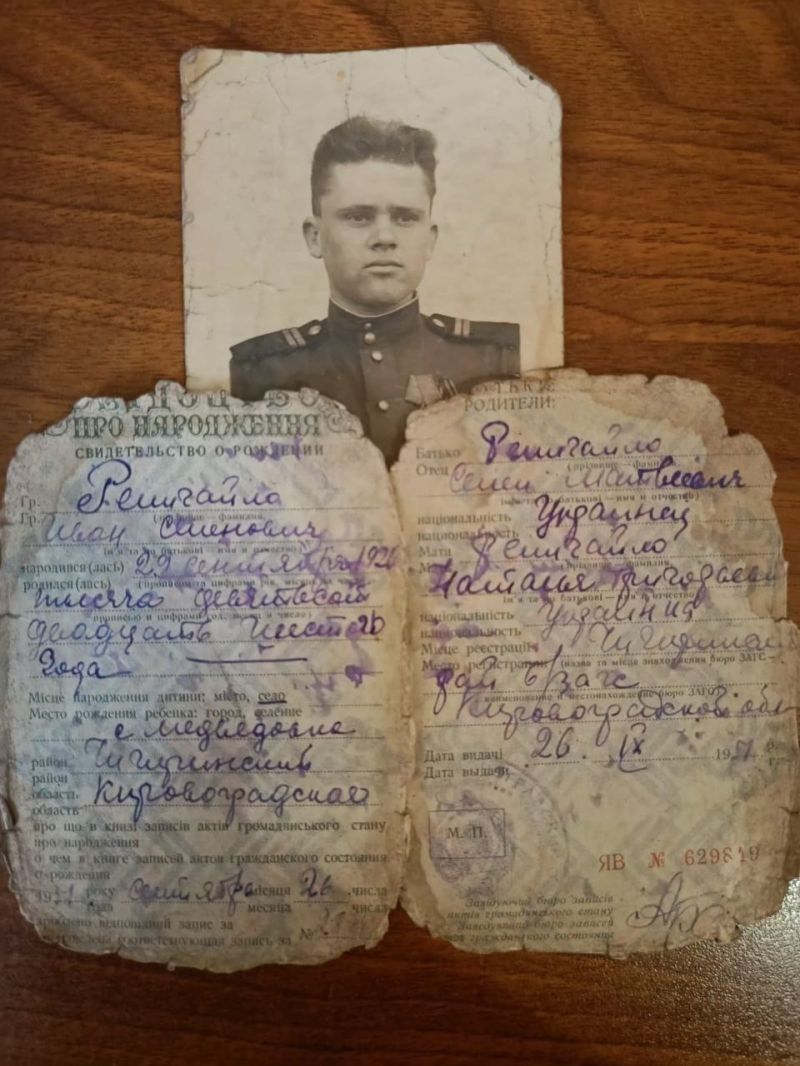 ПРО НАРОДЖЕННЯ
СВИДЕТЕЛЬСТВО О РОЖДЕНИИ
Гр.
(прізвище – фамилия)
Гр.
Иван Семенович
(ім'я та по батькові – имя и отчество)
народився (лась) 29 сентября 1926
родился (лась)
тысяча девятьсот
двадцать шест
года
Місце народження дитини: місто, село
Место рождения ребенка: город, селение
с Медведовка
район Чигиринский
район
область Кировоградская
область
про що в книзі записів актів громадянського стану
про народження
о чем в книге записей актов гражданского состояния
о рождении
року сентября місяця 26 числа
года месяца числа
відповідний запис за
соответствующая запись за №
РОДИТЕЛИ:
Батько
Отец (прізвище – фамилия)
Семен Матвеевич
національність Украинец
национальность
Мати
Наталья Григорьевн
національність
национальность
Місце реєстрації
Место регистрации (назва та місце знаходження бюро ЗАГС –
рай б/загс
наименование и местонахождение бюро ЗАГС)
Кировоградской обл
Дата видачі 26 IX 19 р.
Дата выдачи г.
М. П.
ЯВ № 629819
Завідуючий бюро записів
актів громадянського стану
Заведующий бюро записей
актов гражданского состояния